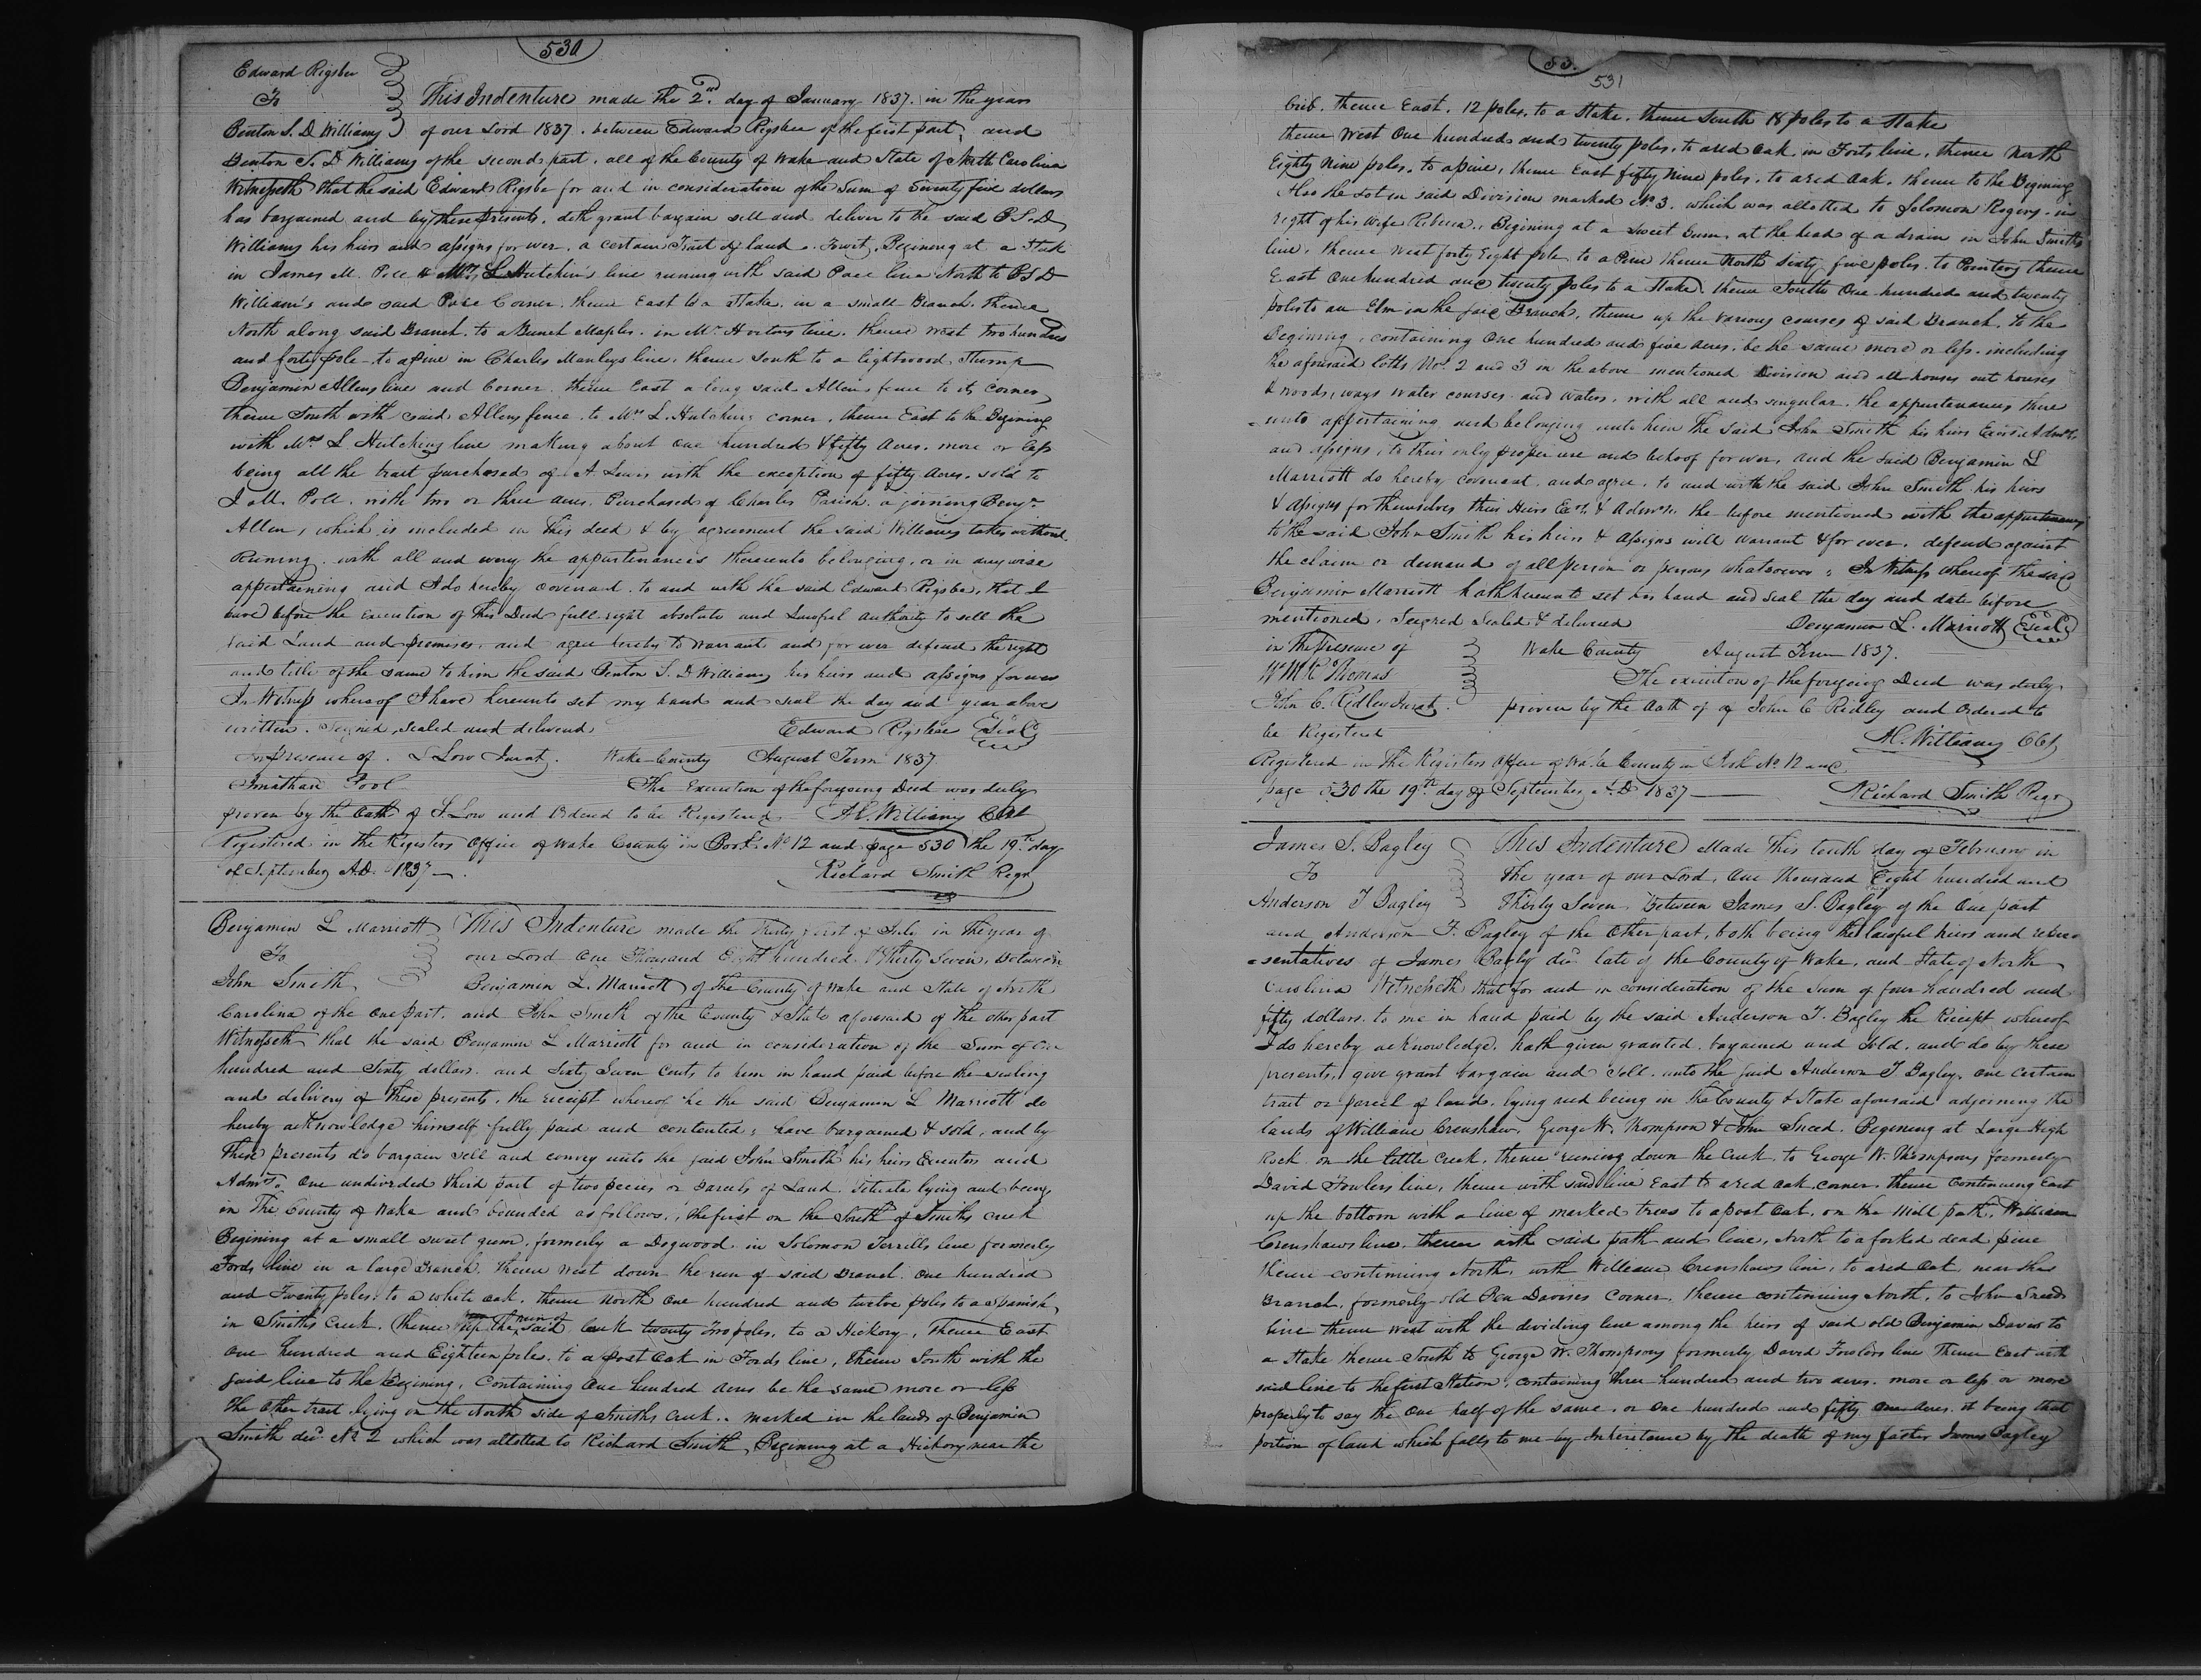 530
Edward Rigsbee
To
Benton S. D Williams
This Indenture made the 2nd. day of January 1837. in the year
of our Lord 1837. between Edward Rigsbee of the first part, and
Benton S. D Williams of the second part. all of the County of Wake and State of North Carolina
Witnesseth that he said Edward Rigsbe for and in consideration of the Sum of Seventy five dollars
has bargained and by these presents. doth grant bargain sell and deliver to the said B. S. D
Williams his heirs and assigns forever. a certain Tract of land. Towit. Begining at a Stake
in James M. Pace & Mrs L Hutchins line runing with said Pace line North to B S D
William's and said Pace Corner. thence East to a Stake. in a small Branch. Thence
North along said Branch. to a Bunch Maples. in Mr Hortons line. thence West two hundred
and forty pole to a pine in Charles Manleys line. thence South to a lightwood Stump
Benjamin Allens line and Corner. thence East a long said Allens fence to its corner,
thence South with said Allens fence to Mrs L. Hutchins corner. thence East to the Begining
with Mrs L Hutchins line making about one hundred & fifty Acres. more or less
being all the tract purchased of A Lewis with the exception of fifty acres. sold to
J M. Pace. with two or three acres. Purchased of Charles Parish. a joining Benjn
Allen, which is included in this deed & by agreement the said Williams takes without
Runing. with all and every the appurtenances thereunto belonging, or in any wise
appertaining and I do hereby covenant to and with the said Edward Rigsbe, that I
have before the execution of this Deed full right absolute and Lawful authority to sell the
said Land and premises. and agree hereby to warrant and for ever defend the right
and title of the same to him the said Benton S. D Williams his heirs and assigns forever
In Witness whereof I have hereunto set my hand and seal the day and year above
written. Signed, sealed and delivered Edward Rigsbee Seal
In presence of. S Low Jurat. Wake County August Term 1837
Jonathan Pool The Execution of the foregoing Deed was duly
proven by the Oath of S. Low and Ordered to be Registered A. Williams Clk
Registered in the Registers Office of Wake County in Book No 12 and page 530 the 19th day
of September A.D. 1837 —. Richard Smith Regr
Benjamin L Marriott
To
John Smith
This Indenture made the Thirty first of July in the year of
our Lord One Thousand Eight hundred & thirty Seven. Between
Benjamin L. Marriott of the County of Wake and State of North
Carolina of the One part. and John Smith of the County & State aforesaid of the other part
Witnesseth that the said Benjamin L Marriott for and in consideration of the Sum of One
hundred and Sixty dollars. and Sixty Seven Cents to him in hand paid before the sealing
and delivery of these presents. the receipt whereof he the said Benjamin L Marriott do
hereby acknowledge himself fully paid and contented, have bargained & sold, and by
These presents do bargain sell and convey unto the said John Smith his heirs Executors and
Admrs. One undivided third part of two pieces or parcels of Land. Situate lying and being
in The County of Wake and bounded as follows., the first on the South of Smiths creek
Begining at a small sweet gum. formerly a Dogwood in Solomon Terrells line formerly
Fords line in a large Branch. thence West down the run of said Branch. One hundred
and Twenty poles. to a white oak. thence North One hundred and twelve poles to a Spanish,
in Smiths Creek. thence up the run of said Creek twenty Two poles, to a Hickory, Thence East
One hundred and Eighteen poles. to a post Oak in Fords line, thence South with the
said line to the Begining, Containing One hundred Acres be the same more or less
The other tract lying on the North side of Smiths Creek.. marked in the lands of Benjamin
Smith decd No 2 which was allotted to Richard Smith, Begining at a Hickory near the
531
Crib. thence East. 12 poles, to a Stake. thence South 18 poles to a Stake
thence West One hundred and twenty poles. to a red Oak. in Forts line, thence North
Eighty nine poles. to a pine, thence East fifty nine poles, to a red Oak. thence to the Begining
Also the Lot in said Division marked No 3. which was allotted to Solomon Rogers. in
right of his wife Rebecca. Begining at a sweet Gum, at the head of a drain in John Smiths
line, thence West forty Eight pole to a Pine thence North Sixty five poles. to Pointers thence
East One hundred and twenty poles to a Stake. thence South One hundred and twenty
poles to an Elm in the said Branch, thence up the various courses of said Branch. to the
Begining, containing One hundred and five Acres. be the same more or less. including
the aforesaid lotts No. 2 and 3 in the above mentioned Division and all houses out houses
& woods, ways water courses and waters, with all and singular. the appurtenances there
unto appertaining and belonging unto him the said John Smith his heirs Exors Admrs
and assigns, to their only proper use and behoof forever, and the said Benjamin L
Marriott do hereby covenant and agree. to and with the said John Smith his heirs
& assigns for themselves their Heirs Exrs & Admrs. the before mentioned with the appurtenances
to the said John Smith his heirs & assigns will warrant & for ever. defend against
the claim or demand of all person or persons whatsoever. In Witness whereof the said
Benjamin Marriott hath hereunto set his hand and seal the day and date before
mentioned. Signed Sealed & delivered Benjamin L. Marriott Seal
in the presence of Wake County August Term 1837.
Thomas The execution of the foregoing Deed was duly
John C. Ridley Jurat. proven by the Oath of of John C Ridley and Ordered to
be Registered A. Williams Clk
Registered in the Registers Office of Wake County in Book No 12 and
page 530 the 19th day of September A. D 1837 — Richard Smith Regr
James S. Bagley
To
Anderson F Bagley
This Indenture Made this tenth day of February in
The year of our Lord, One thousand Eight hundred and
Thirty Seven. Between James S. Bagley of the One part
and Anderson F. Bagley of the Other part, both being the lawful heirs and repre
sentatives of James Bagley decd late of the County of Wake, and State of North
Carolina Witnesseth that for and in consideration of the Sum of four hundred and
fifty dollars. to me in hand paid by the said Anderson F. Bagley the Receipt whereof
I do hereby acknowledge, hath given granted. bargained and sold. and do by these
presents, give grant bargain and Sell. unto the said Anderson F Bagley. One certain
tract or parcel of land, lying and being in the County & State aforesaid adjoining the
lands of William Crenshaw. George W. Thompson & John Sneed. Begining at Large High
Rock on the little Creek. thence runing down the Creek. to George W. Thompsons formerly
David Fowlers line, thence with said line East to a red Oak corner. thence Continuing East
up the bottom with a line of marked trees to a post Oak. on the Mill path William
Crenshaws line. thence with said path and line, North to a forked dead pine
thence continuing North. with William Crenshaws line, to a red Oak near the
Branch. formerly old Ben Davises Corner. thence continuing North. to John Sneeds
line thence West with the dividing line among the heirs of said old Benjamin Davis to
a Stake thence South to George W. Thompsons formerly David Fowlers line Thence East with
said line to the first Station, containing three hundred and two acres. more or less or more
properly to say the One half of the same. or One hundred and fifty One Acres. it being that
portion of land which falls to me by Inheritance by the death of my father James Bagley